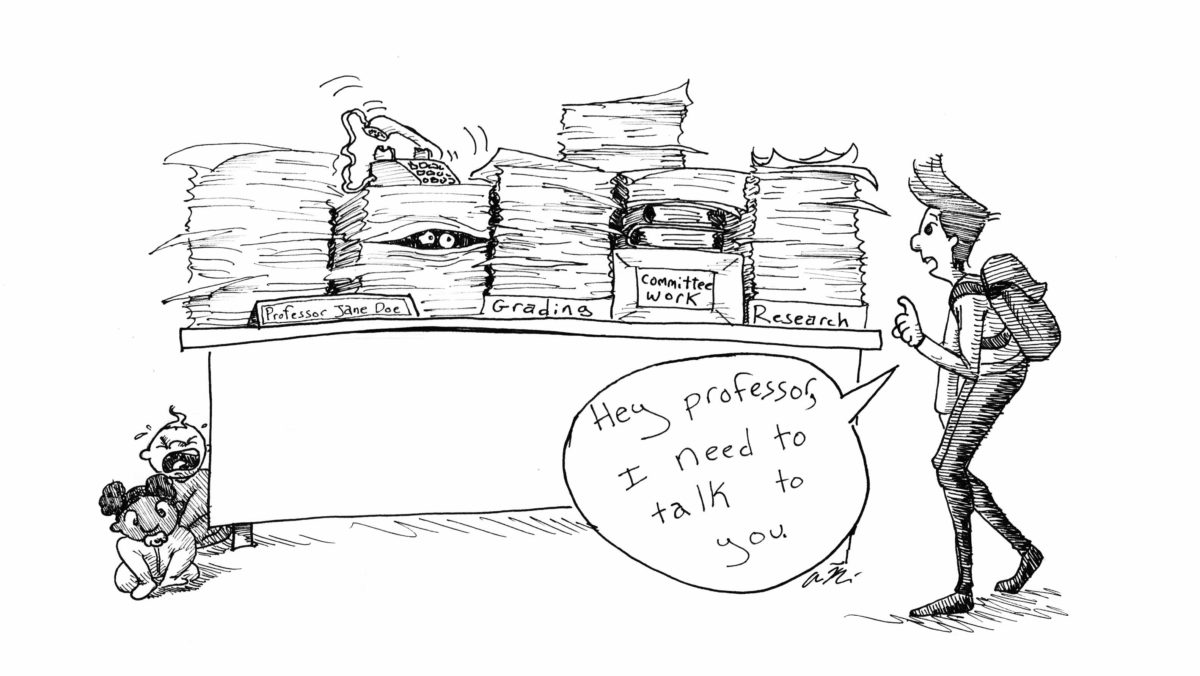 Professor Jane Doe
Grading
Committee
Work
Research
Hey professor,
I need to
talk to
you.